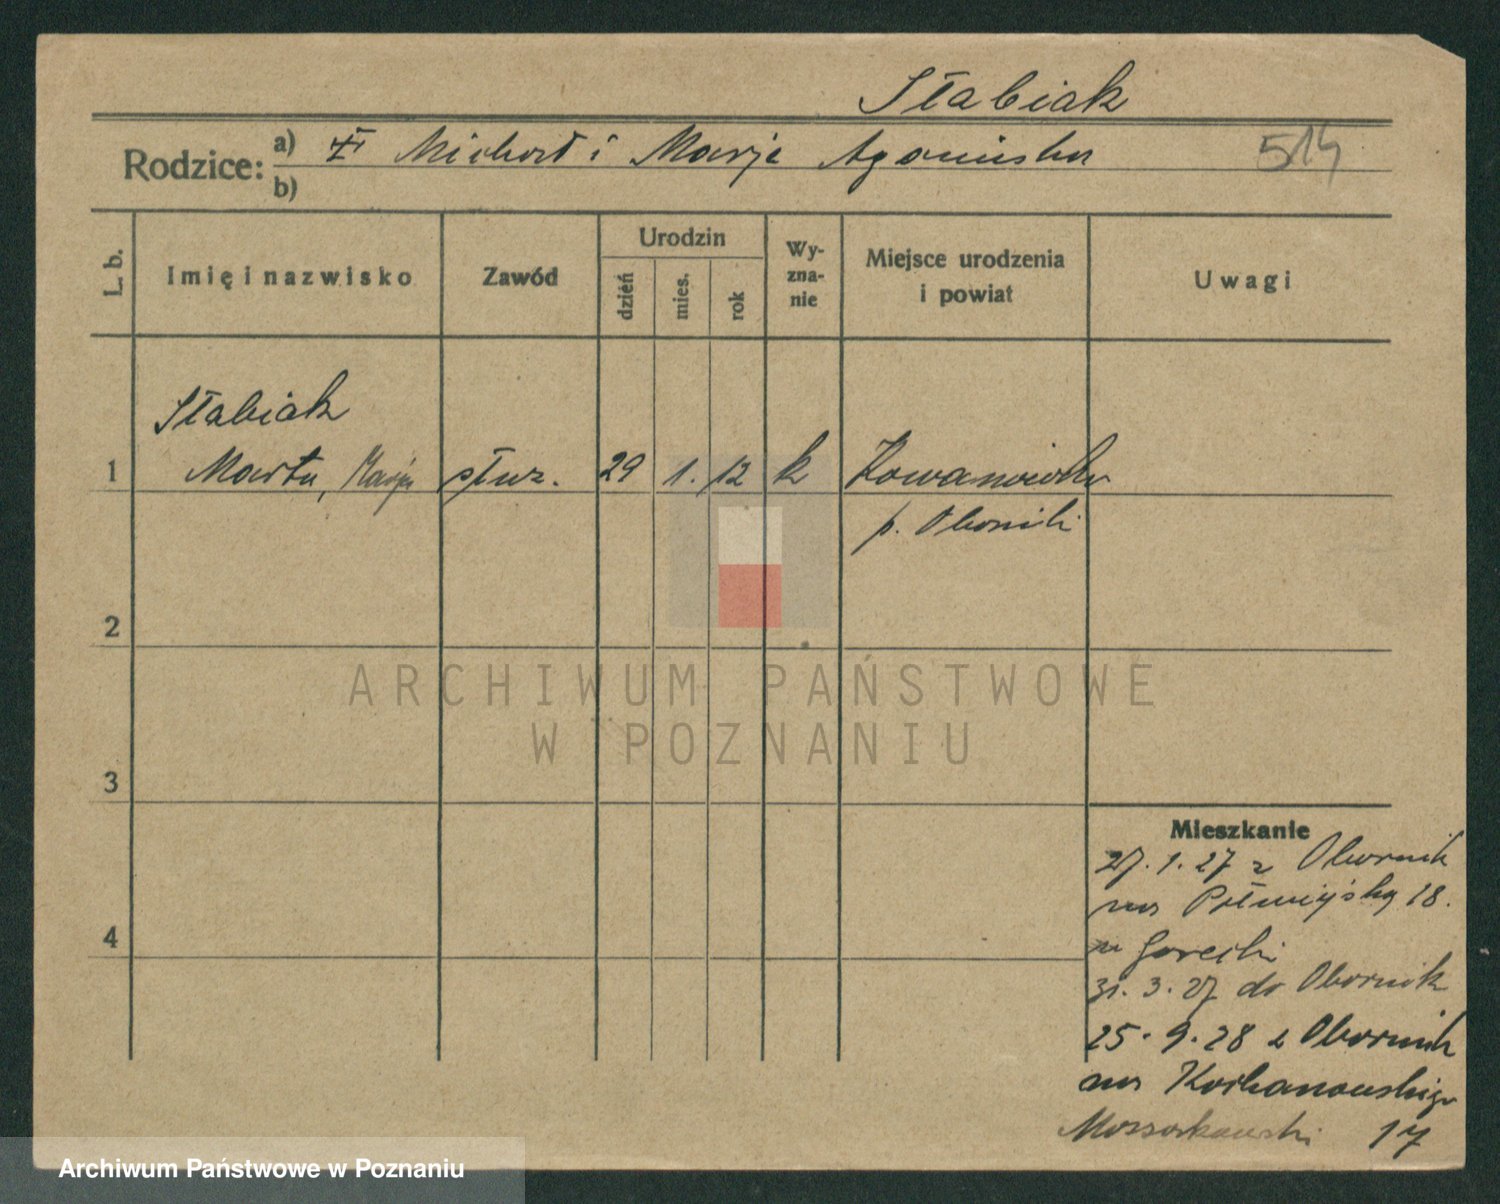 Słabiak
Rodzice: a) Michał i Marja Agacińska
514
b)
L. b.
Imię i nazwisko
Zawód
Urodzin
dzień
mies.
rok
Wy-
zna-
nie
Miejsce urodzenia
i powiat
Uwagi
Słabiak
1 Marta, Marja służ. 29 1. 12 k Kowanówko
p. Oborniki
2
3
4
ARCHIWUM PAŃSTWOWE
W POZNANIU
Mieszkanie
27. 1. 27 z Obornik
na Półwiejską 18.
Górecki
31. 3. 27 do Obornik
25. 9. 28 z Obornik
na Kochanowskiego
17
Archiwum Państwowe w Poznaniu